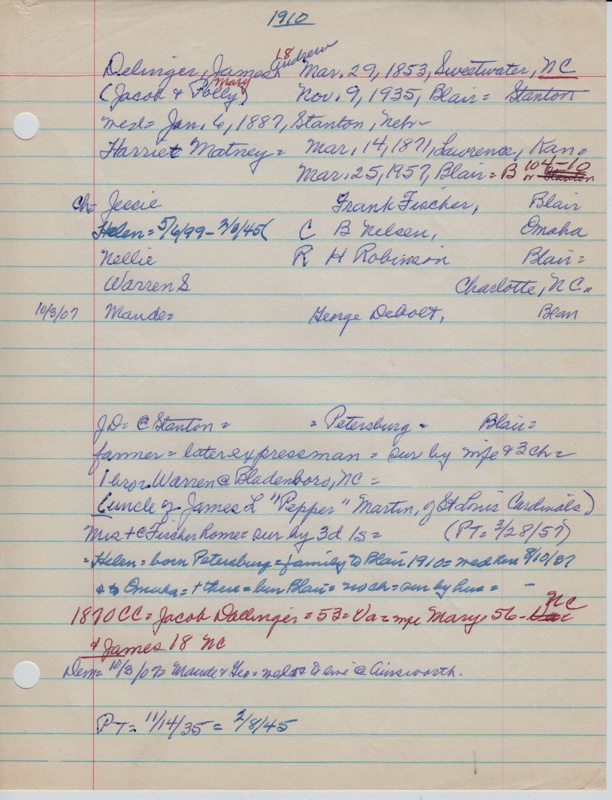 1910
18 Andrew
Delinger, James Mar. 29, 1853, Sweetwater, NC
Mary
(Jacob & Polly) Nov. 9, 1935, Blair = Stanton
med = Jan. 6, 1887, Stanton, Neb
Harriet Matney = Mar. 14, 1871, Lawrence, Kan =
Mar. 25, 1957, Blair = B 104-10
Ch = Jessie Frank Fischer, Blair
Helen = 5/6/99 - 2/3/45 C B Nelsen, Omaha
Nellie R H Robinson Blair =
Warren S Charlotte, NC =
10/3/07 Maude = George Debolt, Blair
JD = @ Stanton = = Petersburg = Blair =
farmer = later expressman = sur by wife & 3 ch =
1 bro Warren @ Bladenboro, NC =
(uncle of James L "Pepper" Martin, of St Louis Cardinals)
Mrs + @ Fischer home = sur by 3d 1s = (PT = 3/28/57)
= Helen = born Petersburg = family to Blair 1910 = med 8/10/27
& to Omaha = + there = bur Blair = no ch = sur by hus = -
1870 CC = Jacob Dallinger = 53 = Va = wife Mary = 56 - NC
& James 18 NC
Dem = 10/3/07 = Maude & Geo = @ Ainsworth.
PT = 11/14/35 = 2/8/45